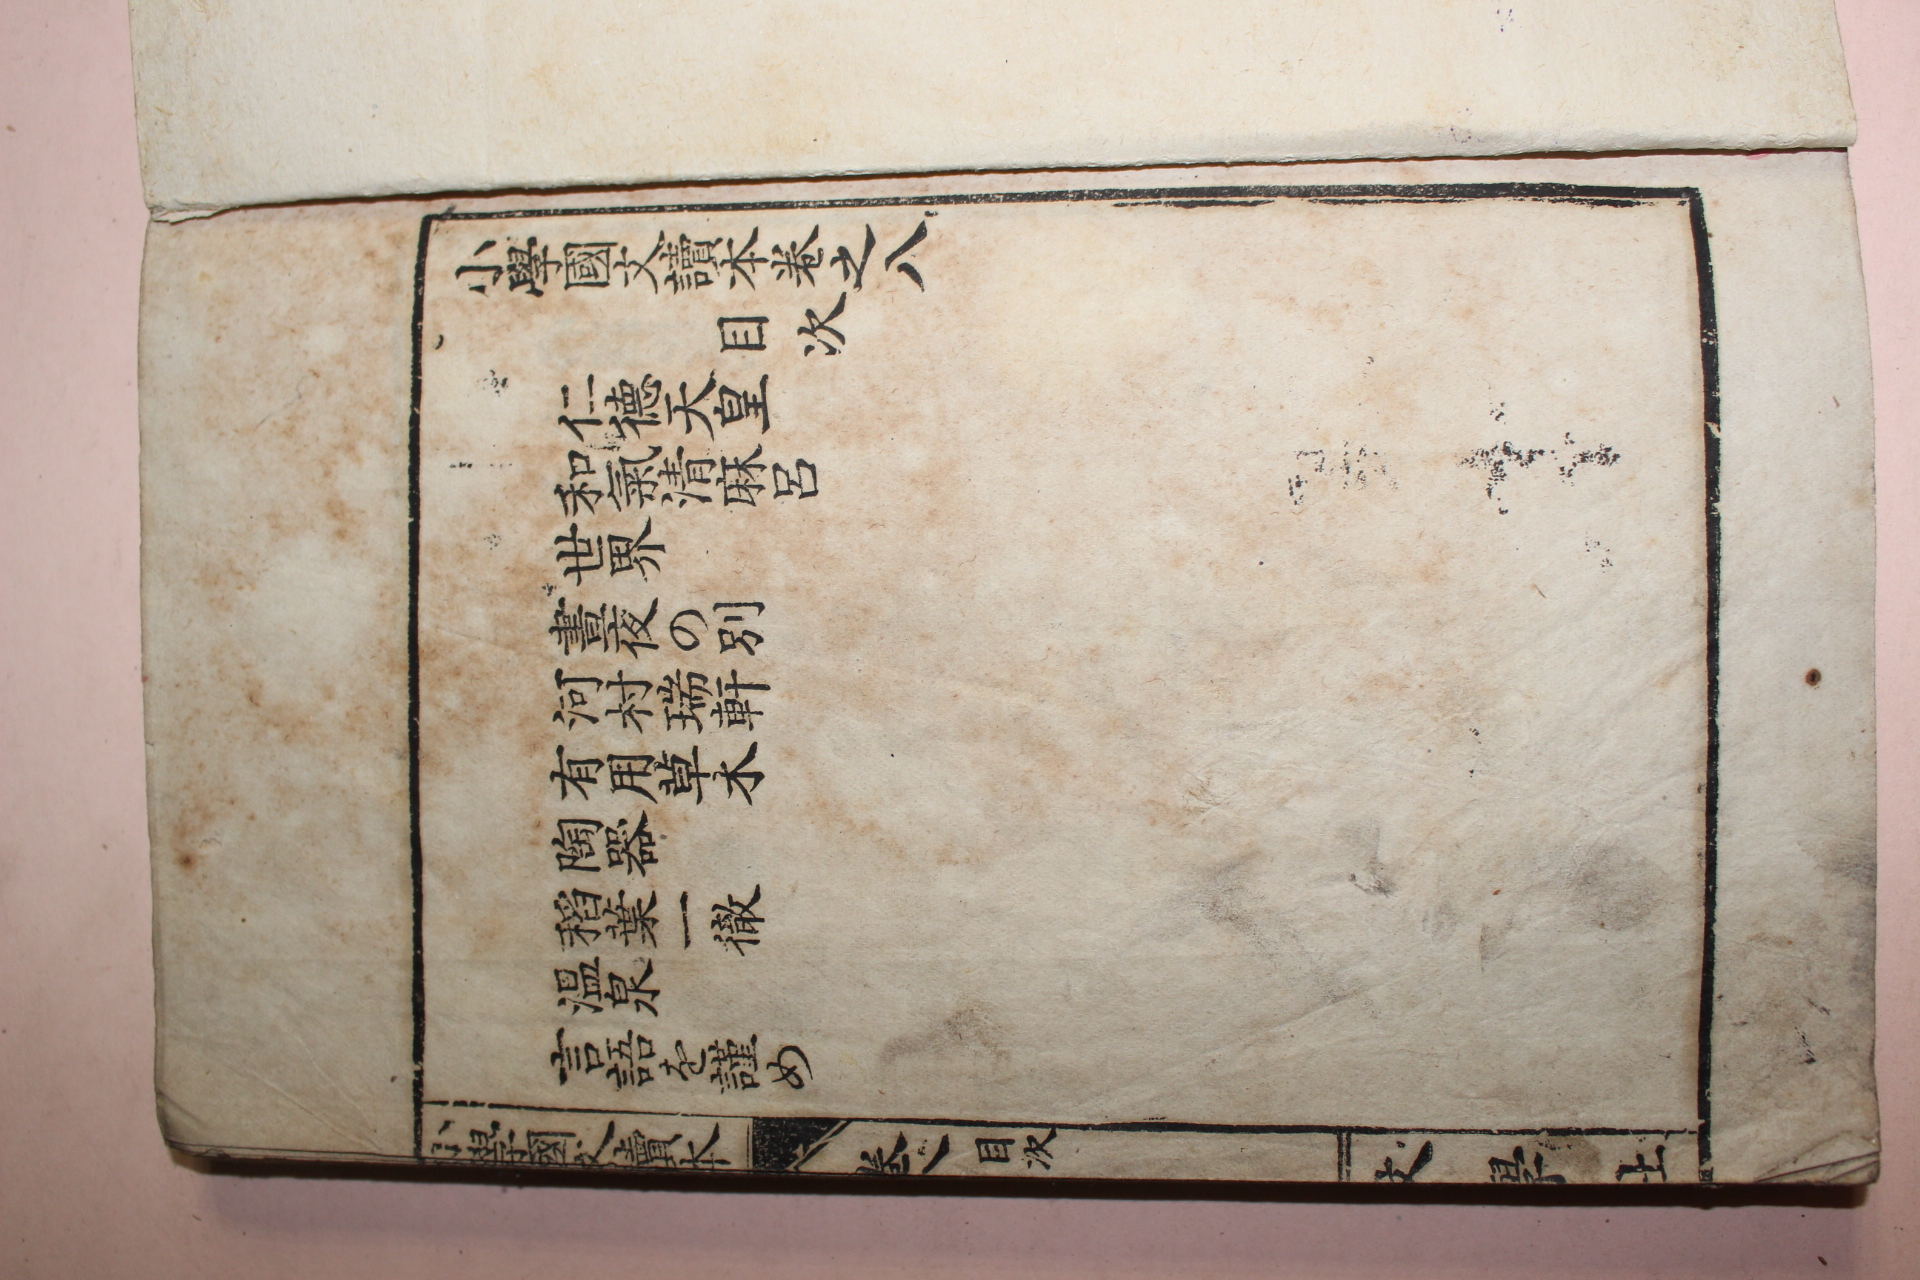 小學國文讀本卷之八
目次
仁德天皇
和氣清麻呂
世界
晝夜の別
河村瑞軒
有用草木
陶器
稻葉一徹
溫泉
言語を謹め
小學國文讀本
卷八
目次
文學社